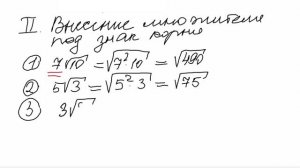 II. Внесение множителя
под знак корня
① 7√10 = √7²·10 = √490
② 5√3 = √5²·3 = √75
③ 3√